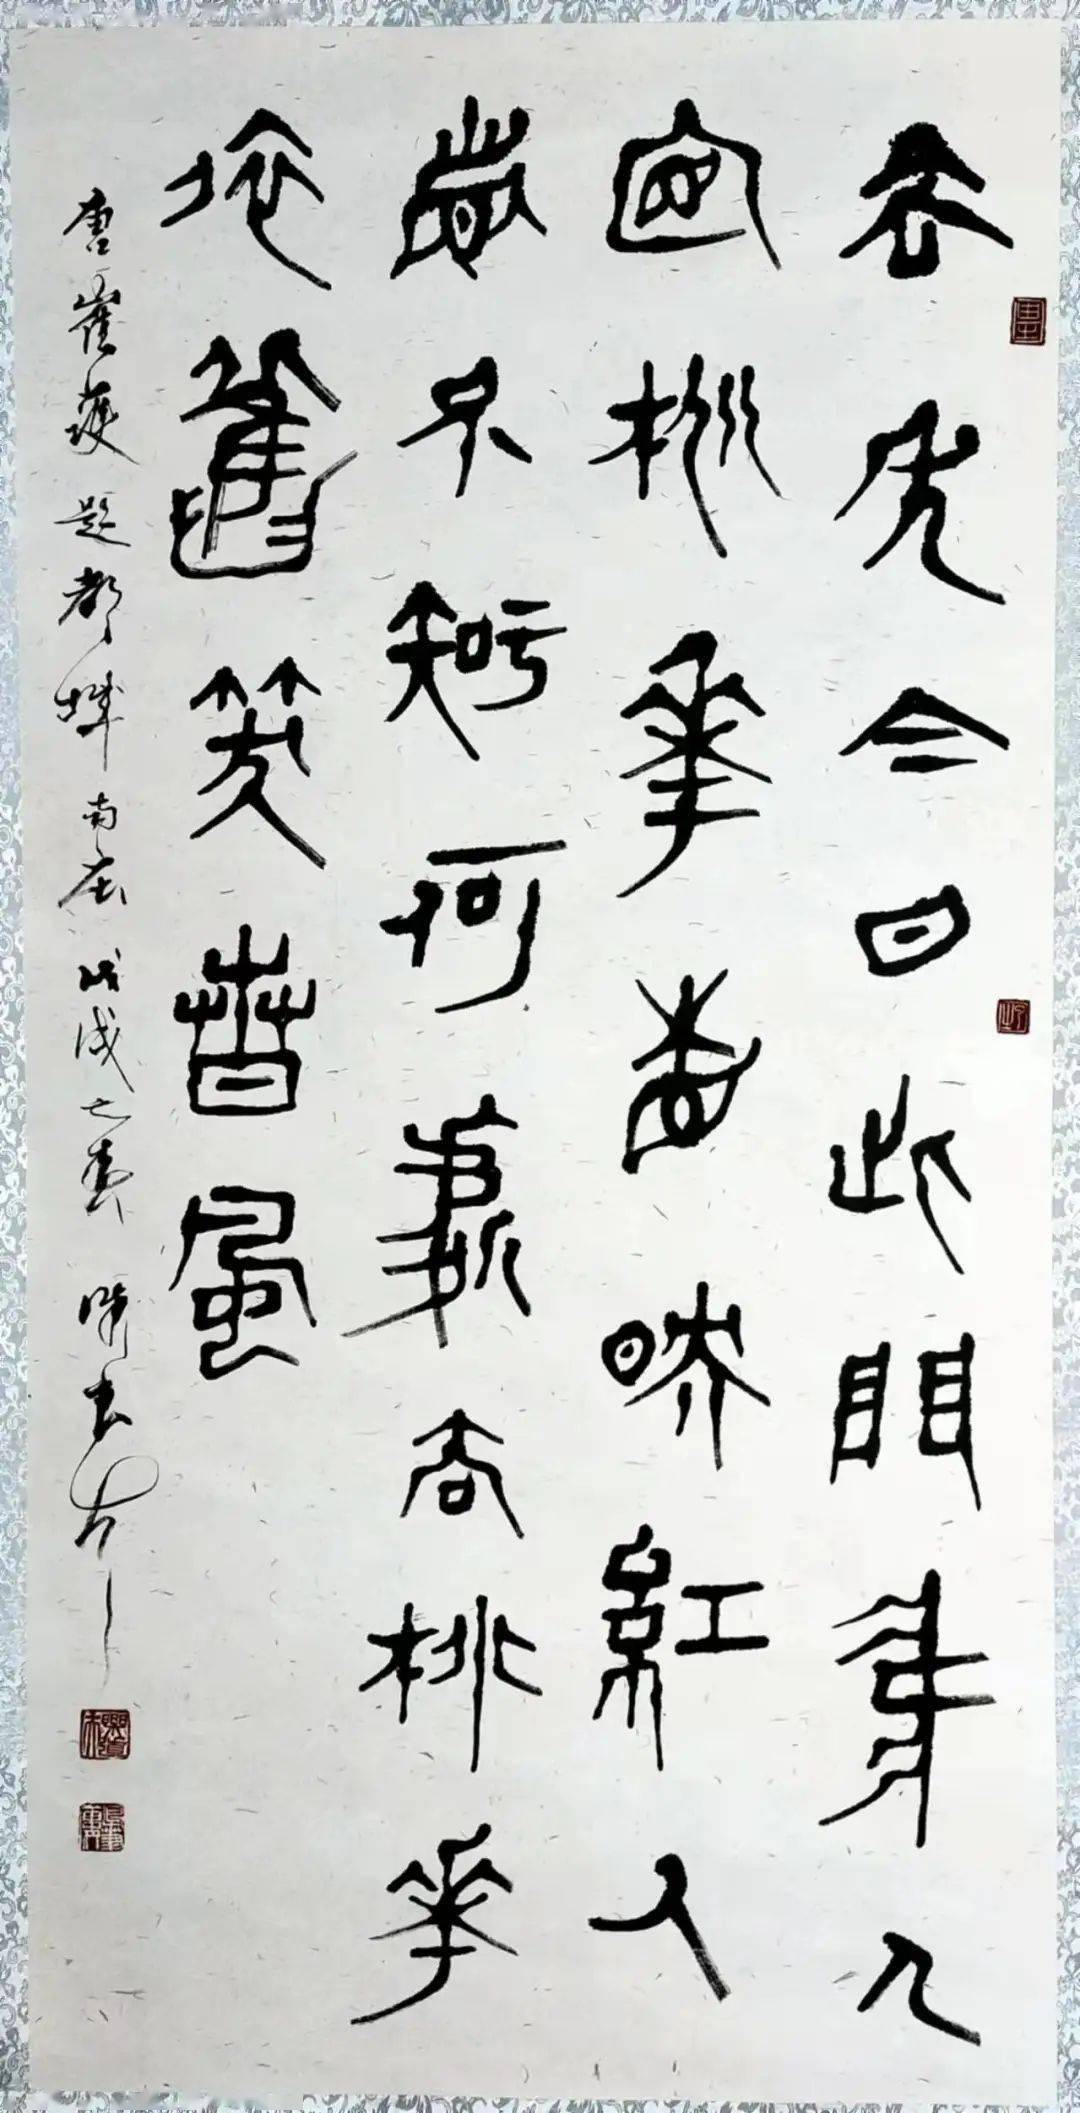 去年今日此門中人
面桃花相映紅人
面不知何處去桃花
依舊笑春風
唐崔護題都城南庄 戊戌之夏